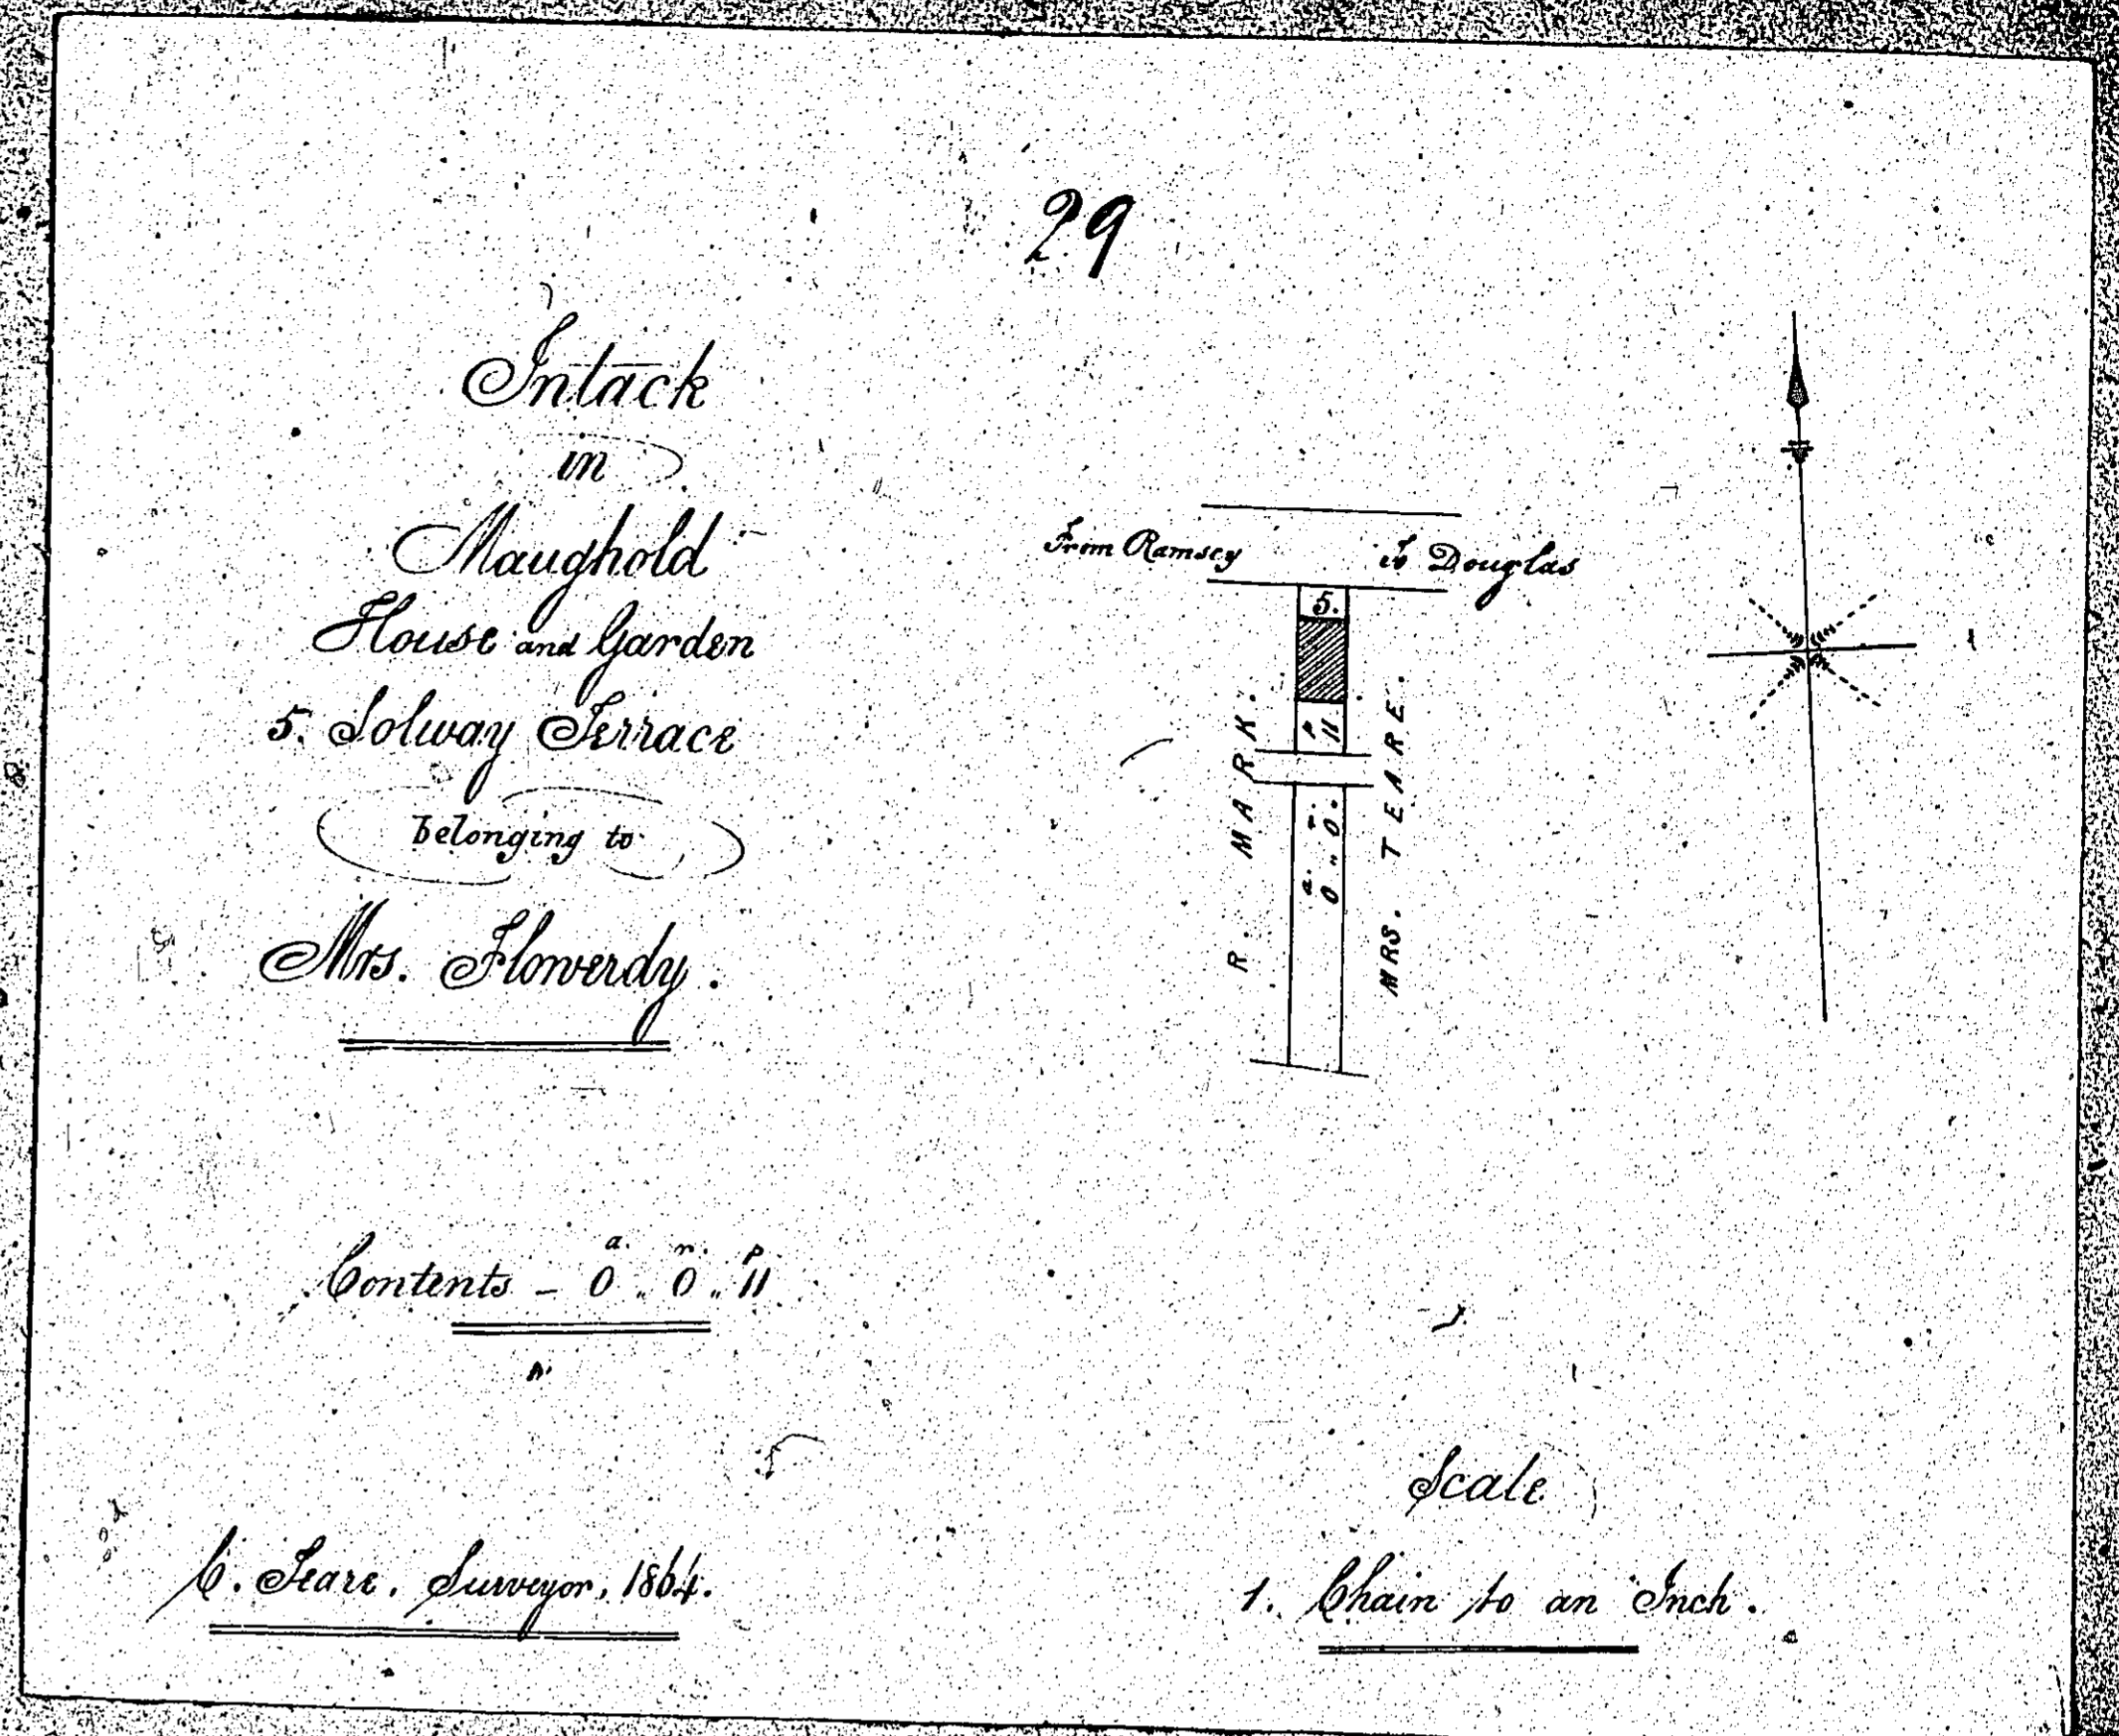 29
Intack
in
Maughold
House and Garden
5. Solway Terrace
belonging to
Mrs. Flowerdy.
Contents - 0 „ 0 „ 11
a. r. p.
C. Teare. Surveyor, 1864.
From Ramsey
To Douglas
5.
R. MARK.
MRS. TEARE.
p
11
a. r.
0 „ 0.
Scale
1. Chain to an Inch.